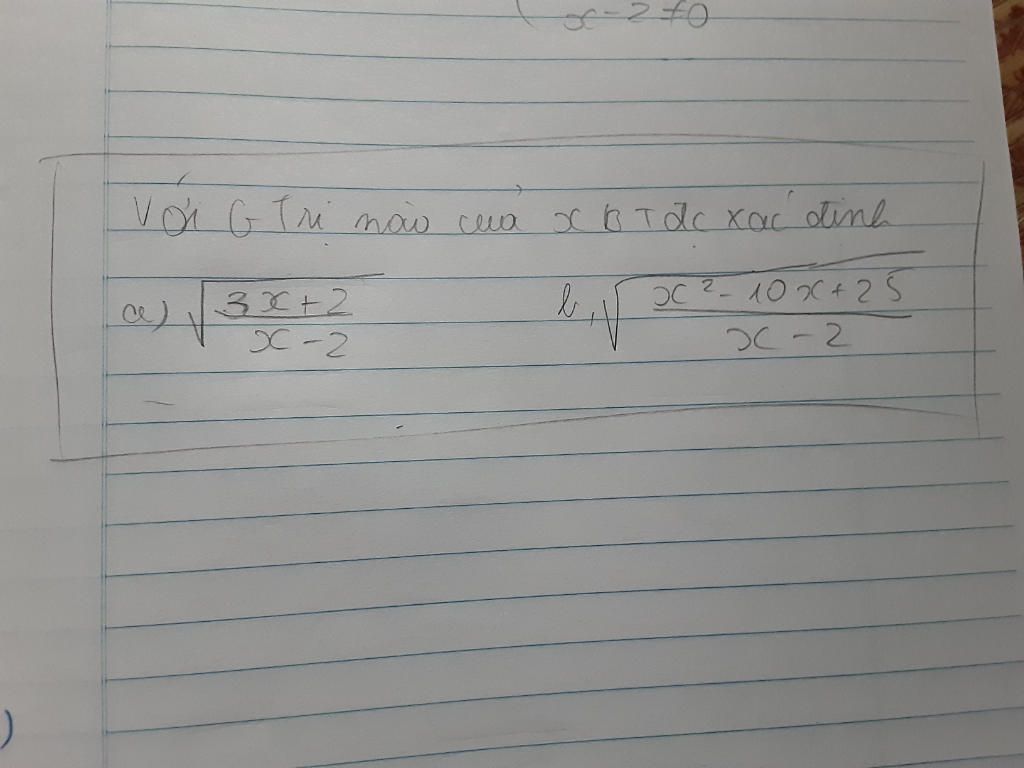 x-2≠0
Với G Trị nào của x BT đc xác định
a) √((3x+2)/(x-2)) b, √((x²-10x+25)/(x-2))
)